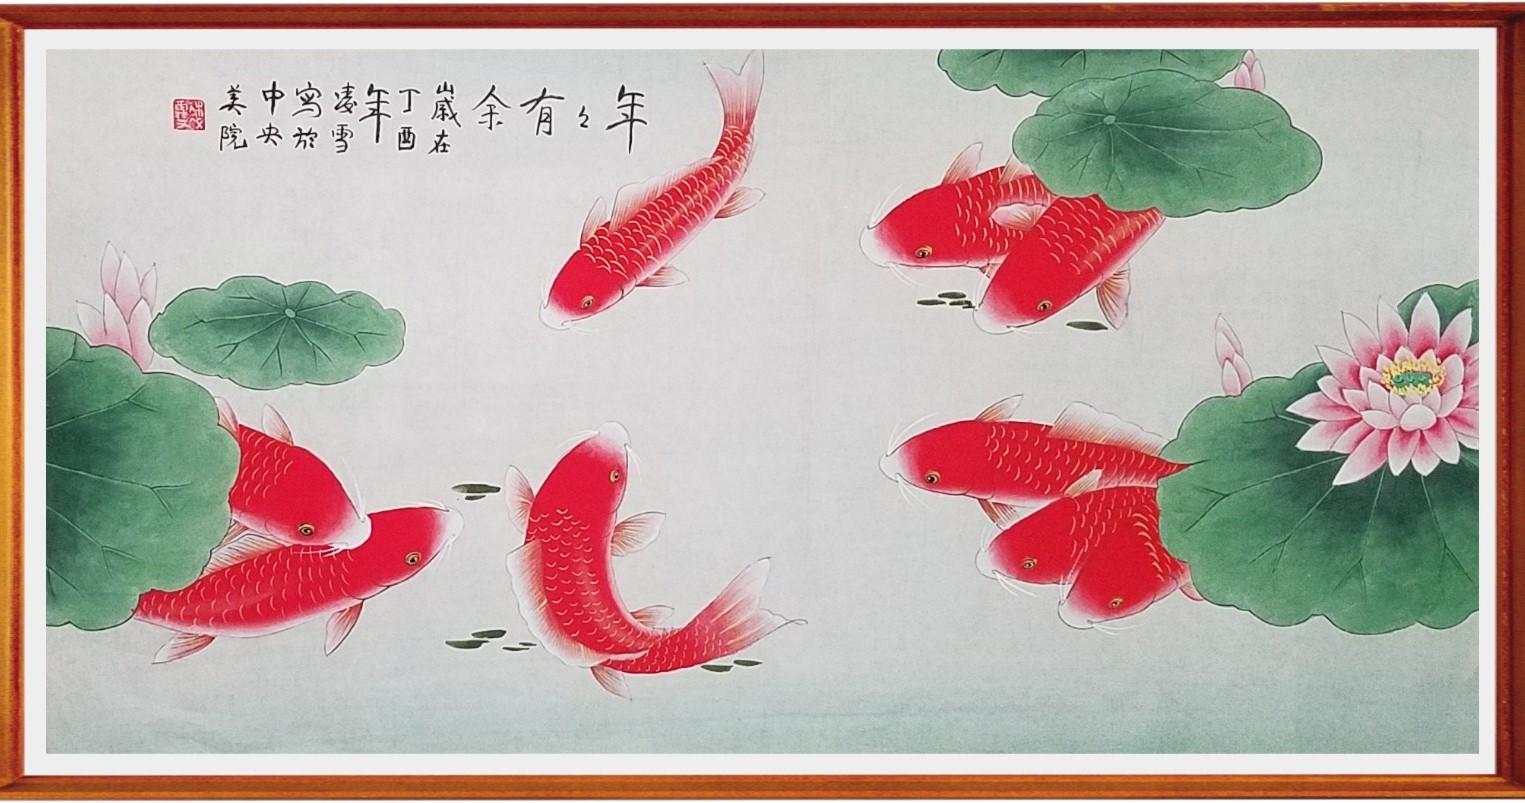 年々有余
嵗在
丁酉
年
凌雪
寫於
中央
美院